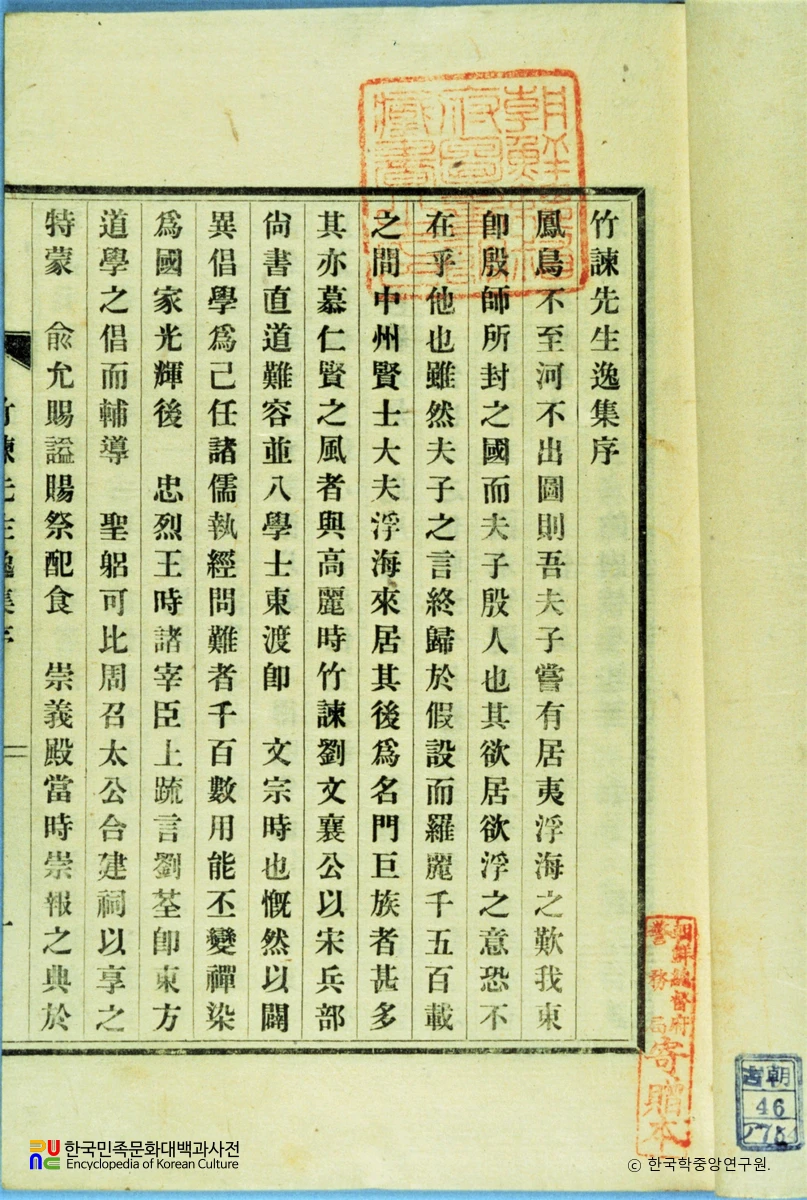 竹諫先生逸集序
鳳鳥不至河不出圖則吾夫子嘗有居夷浮海之歎我東
卽殷師所封之國而夫子殷人也其欲居欲浮之意恐不
在乎他也雖然夫子之言終歸於假設而羅麗千五百載
之間中州賢士大夫浮海來居其後爲名門巨族者甚多
其亦慕仁賢之風者與高麗時竹諫劉文襄公以宋兵部
尙書直道難容並八學士東渡卽 文宗時也慨然以闢
異倡學爲己任諸儒執經問難者千百數用能丕變禪染
爲國家光輝後 忠烈王時諸宰臣上疏言劉荃卽東方
道學之倡而輔導 聖躬可比周召太公合建祠以享之
特蒙 兪允賜諡賜祭配食 崇義殿當時崇報之典於
竹諫先生逸集序 一
朝鮮總督府圖書館藏書之印
朝鮮總督府
警務局
寄贈本
朝古
46
한국민족문화대백과사전
Encyclopedia of Korean Culture
© 한국학중앙연구원.